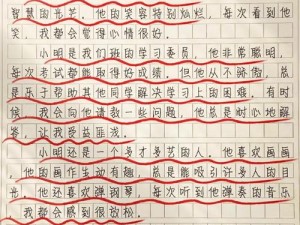 智慧的光芒。他的笑容特别灿烂，每次看到他
笑，我都会觉得心情很好。
小明是我们班的学习委员，他非常聪明，
每次考试都能取得好成绩。但他从不骄傲，总
是乐于帮助其他同学解决学习上的困难。有时
候，我会向他请教一些问题，他总是耐心地解
答，让我受益匪浅。
小明还是一个多才多艺的人。他喜欢画画，
他的画作生动有趣，总是能吸引许多人的目
光。他还喜欢弹钢琴，每次听到他弹奏的音乐
我都会感到很放松。